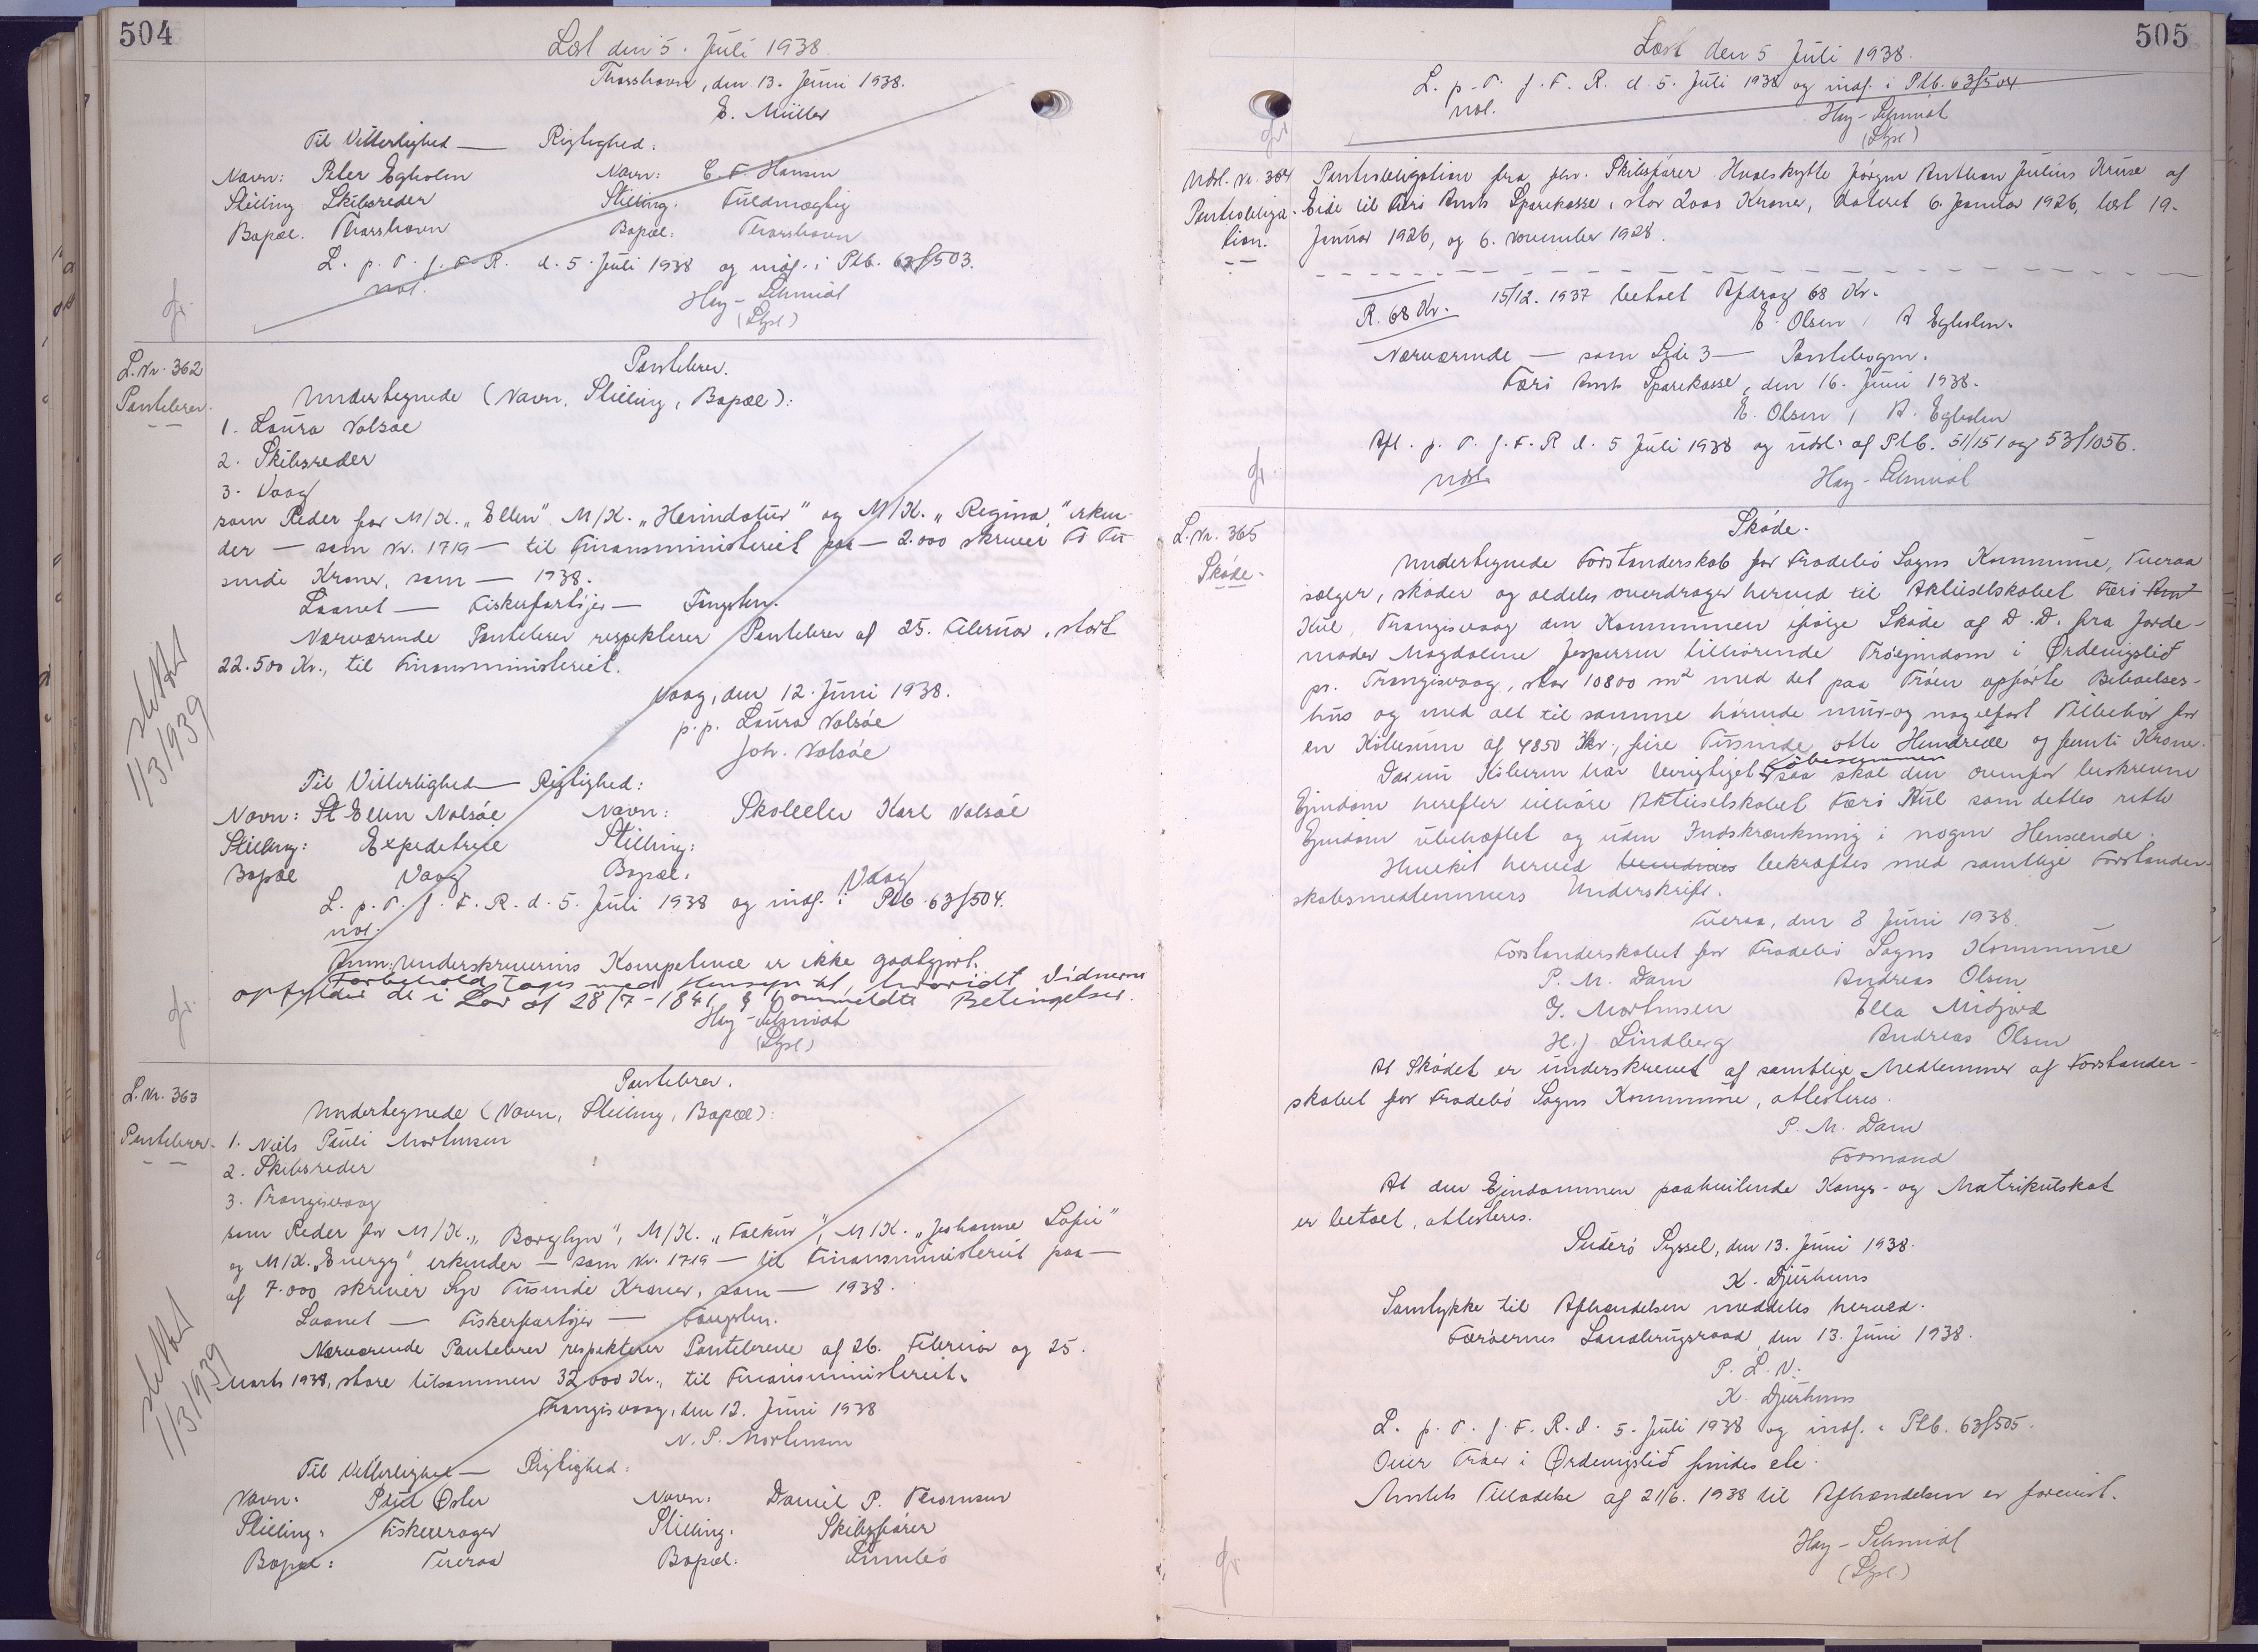 504
Læst den 5. Juli 1938.
Thorshavn, den 13. Juni 1938.
E. Müller
Til Vitterlighed — Rigtighed:
Navn: Peter Egholm Navn: C. F. Hansen
Stilling Skibsreder Stilling: Fuldmægtig
Bopæl. Thorshavn Bopæl: Thorshavn
L. p. T. f. F. R. d. 5. Juli 1938 og indf. i Ptb. 63/503.
not.
Hay-Schmidt
(Lgsl.)
L. Nr. 362
Pantebrev.
Pantebrev.
Undertegnede (Navn, Stilling, Bopæl):
1. Laura Nolsøe
2. Skibsreder
3. Vaag
som Reder for M/K. „Ellen" M/K. „Henindatur" og M/K. „Regina," erken-
der — som Nr. 1719 — til Finansministeriet paa — 2.000 skriver To Tu-
sinde Kroner, som — 1938.
Laanet — Fiskerfartøjer — Fangsten.
Nærværende Pantebrev respekterer Pantebrev af 25. Februar, stort
22.500 Kr., til Finansministeriet.
Vaag, den 12. Juni 1938.
p.p. Laura Nolsøe
Joh. Nolsøe
Til Vitterlighed — Rigtighed:
Navn: St Ellen Nolsøe Navn: Skoleelev Karl Nolsøe
Stilling: Expeditrice Stilling:
Bopæl Vaag Bopæl. Vaag
L. p. T. f. F. R. d. 5. Juli 1938 og indf. i Ptb. 63/504.
not.
Anm: Underskriverens Kompetence er ikke godtgjort.
Forbehold tages med Hensyn til, hvorvidt Vidnerne
opfylder de i Lov af 28/7-1841 § 1 ommeldte Betingelser.
Hay-Schmidt
(Lgsl.)
slettet
1/3 1939
L. Nr. 363
Pantebrev.
Pantebrev.
Undertegnede (Navn, Stilling, Bopæl):
1. Niels Pauli Mortensen
2. Skibsreder
3. Trangisvaag
som Reder for M/K. „Borglyn", M/K. „Falkur", M/K. „Johanne Sofie"
og M/K. „Energy" erkender — som Nr. 1719 — til Finansministeriet paa —
af 7.000 skriver Syv Tusinde Kroner, som — 1938.
Laanet — Fiskerfartøjer — Fangsten.
Nærværende Pantebrev respekterer Pantebreve af 26. Februar og 25.
Marts 1938, store tilsammen 32.000 Kr., til Finansministeriet.
Trangisvaag, den 12. Juni 1938
N. P. Mortensen
Til Vitterlighed — Rigtighed:
Navn: Poul Øster Navn: Daniel P. Thomsen
Stilling: Fiskevrager Stilling: Skibsfører
Bopæl: Tveraa Bopæl: Sumbø
slettet
1/3 1939
505
Læst den 5 Juli 1938.
L. p. T. f. F. R. d. 5. Juli 1938 og indf. i Ptb. 63/504
not.
Hay-Schmidt
(Lgsl.)
Udsl. Nr. 364
Pantobliga-
tion.
Pantobligation fra fhv. Skibsfører Hvalskytte Jørgen Anthon Julius Kruse af
Eide til Færø Amts Sparekasse, stor 2000 Kroner, dateret 6. Januar 1926, læst 19.
Januar 1926, og 6. November 1928.
R. 68 Kr. 15/12. 1937 betalt Afdrag 68 Kr.
E. Olsen / A Egholm.
Nærværende — som Side 3 — Pantebogen.
Færø Amts Sparekasse, den 16. Juni 1938.
E. Olsen / A. Egholm
Afl. p. T. f. F. R d. 5 Juli 1938 og udsl. af Ptb. 51/151 og 53/1056.
udsl.
Hay-Schmidt
L. Nr. 365
Skøde.
Skøde.
Undertegnede Forstanderskab for Frodebø Sogns Kommune, Tveraa
sælger, skøder og aldeles overdrager herved til Aktieselskabet Færø Amt
Kul, Trangisvaag den Kommunen ifølge Skøde af D. D. fra Jorde-
moder Magdalene Jespersen tilhørende Trøejendom i Ørdevigslid
pr. Trangisvaag, stor 10800 m² med det paa Trøen opførte Beboelses-
hus og med alt til samme hørende mur- og nagelfast Tilbehør for
en Købesum af 4850 Kr., fire Tusinde otte Hundrede og femti Kroner.
Da nu Køberen har berigtiget Købesummen saa skal den ovenfor beskrevne
Ejendom herefter tilhøre Aktieselskabet Færø Kul som dettes rette
Ejendom ubehæftet og uden Indskrænkning i nogen Henseende.
Hvilket herved bekræftes med samtlige Forstander-
skabsmedlemmers Underskrift.
Tveraa, den 8 Juni 1938.
Forstanderskabet for Frodebø Sogns Kommune
P. M. Dam Andreas Olsen
G. Mortensen Ella Midjord
H. J. Lindberg Andreas Olsen
At Skødet er underskrevet af samtlige Medlemmer af Forstander-
skabet for Frodebø Sogns Kommune, attesteres.
P. M. Dam
Formand
At den Ejendommen paahvilende Konge- og Matrikulskat
er betalt, attesteres.
Suderø Syssel, den 13. Juni 1938.
K. Djurhuus
Samtykke til Afhændelsen meddeles herved.
Færøernes Landbrugsraad, den 13. Juni 1938.
P. L. V.
K. Djurhuus
L. p. T. f. F. R. d. 5. Juli 1938 og indf. i Ptb. 63/505.
Over Trøer i Ørdevigslid findes ele.
Amtets Tilladelse af 21/6. 1938 til Afhændelsen er forevist.
Hay-Schmidt
(Lgsl.)